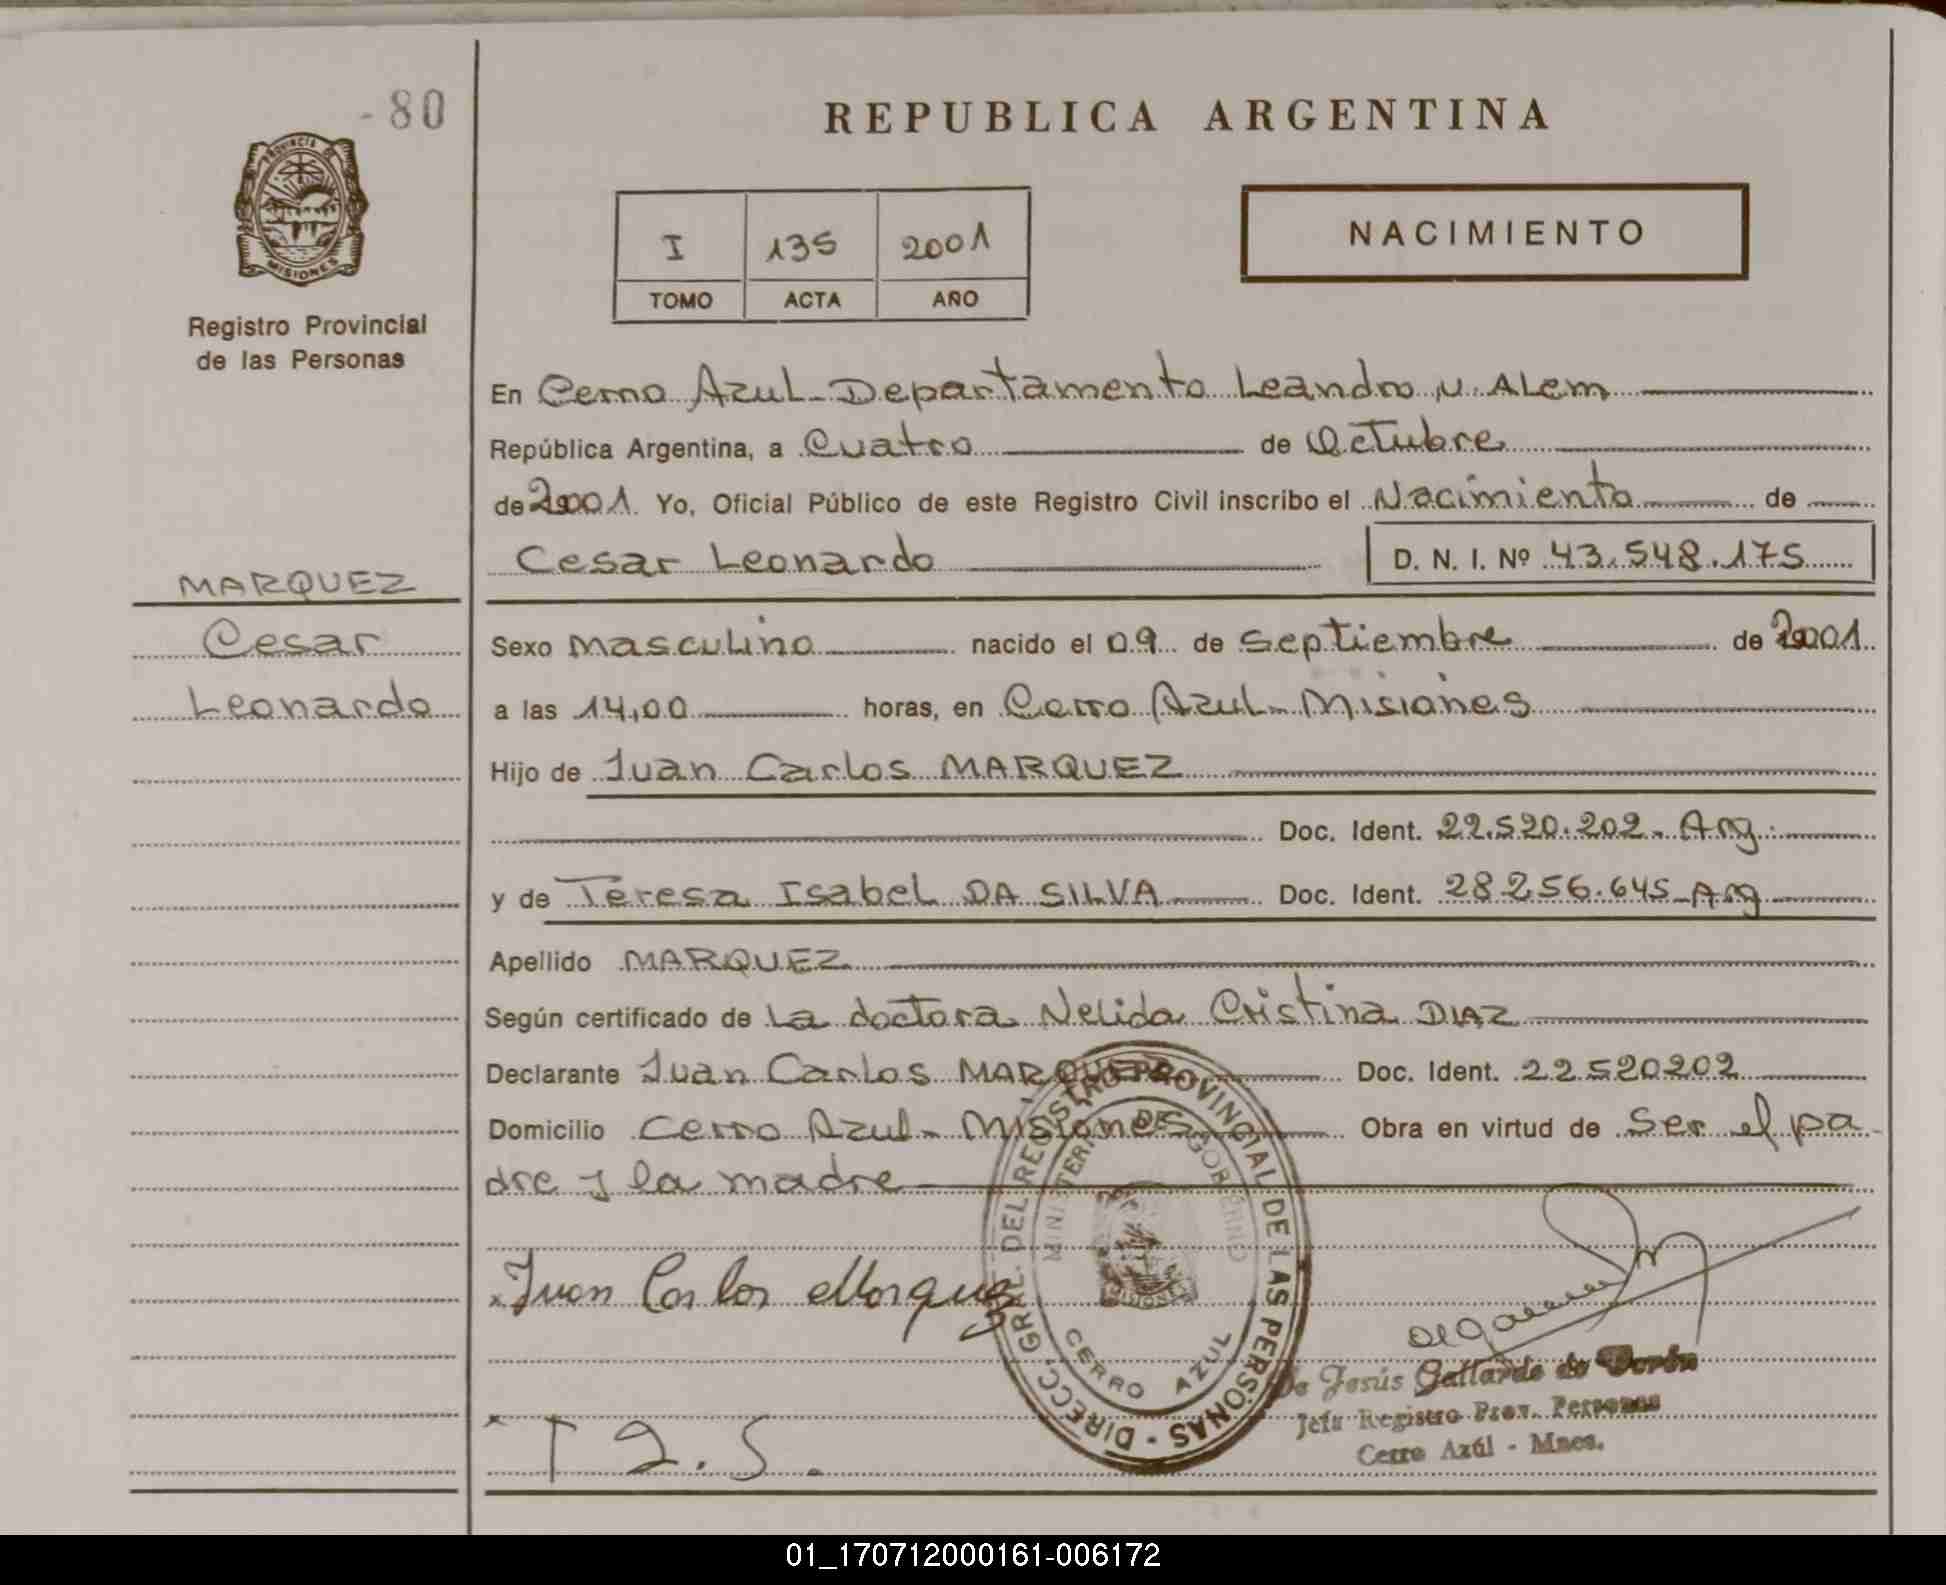 - 80
REPUBLICA ARGENTINA
PROVINCIA DE
MISIONES
Registro Provincial
de las Personas
I 135 2001
TOMO ACTA AÑO
NACIMIENTO
En Cerro Azul - Departamento Leandro N. ALem
República Argentina, a Cuatro de Octubre
de 2001. Yo, Oficial Público de este Registro Civil inscribo el Nacimiento de
Cesar Leonardo D. N. I. Nº 43.548.175
MARQUEZ
Cesar
Leonardo
Sexo masculino nacido el 09 de septiembre de 2001
a las 14,00 horas, en Cerro Azul - Misiones
Hijo de Juan Carlos MARQUEZ
Doc. Ident. 22.520.202 - Arg.
y de Teresa Isabel DA SILVA Doc. Ident. 28.256.645 - Arg
Apellido MARQUEZ
Según certificado de La doctora Nelida Cristina DIAZ
Declarante Juan Carlos MARQUEZ Doc. Ident. 22520202
Domicilio Cerro Azul - Misiones Obra en virtud de Ser el pa
dre y la madre
DIRECC. GRAL. DEL REGISTRO PROVINCIAL DE LAS PERSONAS -
MINISTERIO DE GOBIERNO
MISIONES
CERRO AZUL
Juan Carlos Marquez
T D. S.
de Jesús Gallardo de
Jefa Registro Prov. Personas
Cerro Azúl - Mnes.
01_170712000161-006172